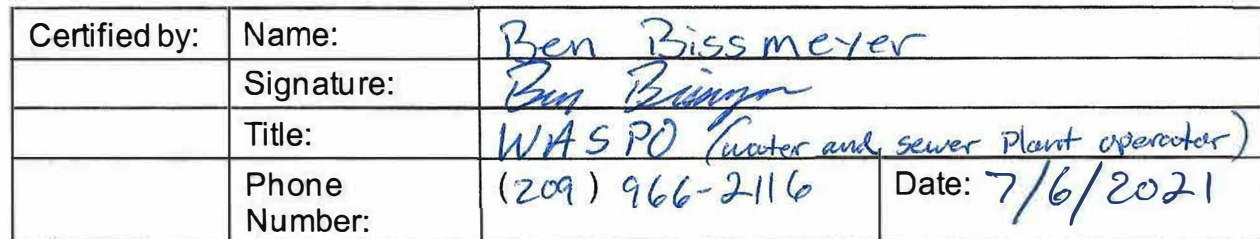 Certified by: Name: Ben Bissmeyer
Signature: Ben Bissmeyer
Title: WASPO (water and sewer Plant operator)
Phone Number: (209) 966-2116 Date: 7/6/2021